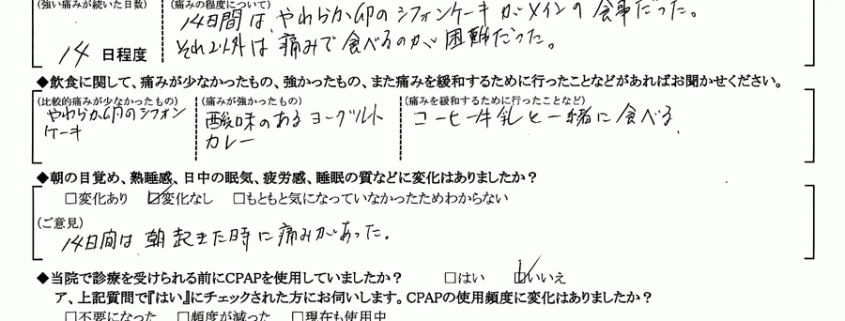 (強い痛みが続いた日数)
(痛みの程度について)
14日間は、やわらか卵のシフォンケーキがメインの食事だった。
それ以外は痛みで食べるのが困難だった。
14 日程度
◆飲食に関して、痛みが少なかったもの、強かったもの、また痛みを緩和するために行ったことなどがあればお聞かせください。
(比較的痛みが少なかったもの)
やわらか卵のシフォン
ケーキ
(痛みが強かったもの)
酸味のあるヨーグルト
カレー
(痛みを緩和するために行ったことなど)
コーヒー牛乳と一緒に食べる。
◆朝の目覚め、熟睡感、日中の眠気、疲労感、睡眠の質などに変化はありましたか?
□変化あり ☑変化なし □もともと気になっていなかったためわからない
(ご意見)
14日間は朝起きた時に痛みがあった。
◆当院で診療を受けられる前にCPAPを使用していましたか? □はい ☑いいえ
ア、上記質問で『はい』にチェックされた方にお伺いします。CPAPの使用頻度に変化はありましたか?
□不要になった □頻度が減った □現在も使用中